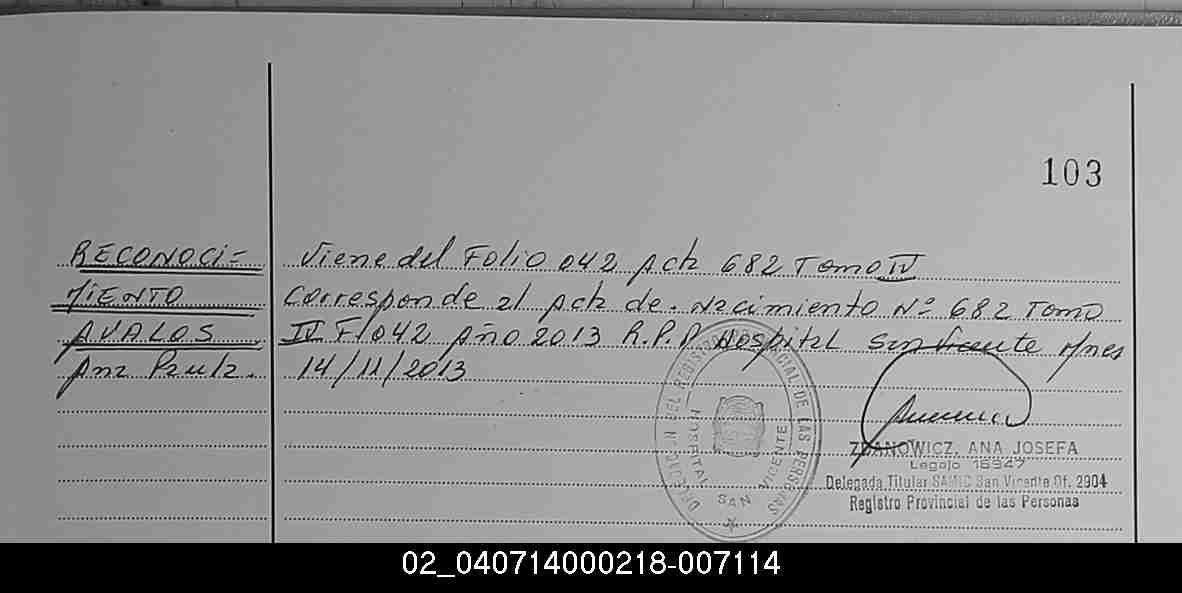 103
RECONOCI=
MIENTO
AVALOS
Ana Paula.
Viene del Folio 042 Acta 682 Tomo IV
Corresponde al Acta de Nacimiento Nº 682 Tomo
IV F/042 Año 2013 R.P.P Hospital San Vicente
14/11/2013
DELEGACION DEL REGISTRO PROVINCIAL DE LAS PERSONAS
HOSPITAL SAN VICENTE
ZDANOWICZ, ANA JOSEFA
Legajo 16947
Delegada Titular SAMIC San Vicente Of. 2904
Registro Provincial de las Personas
02_040714000218-007114